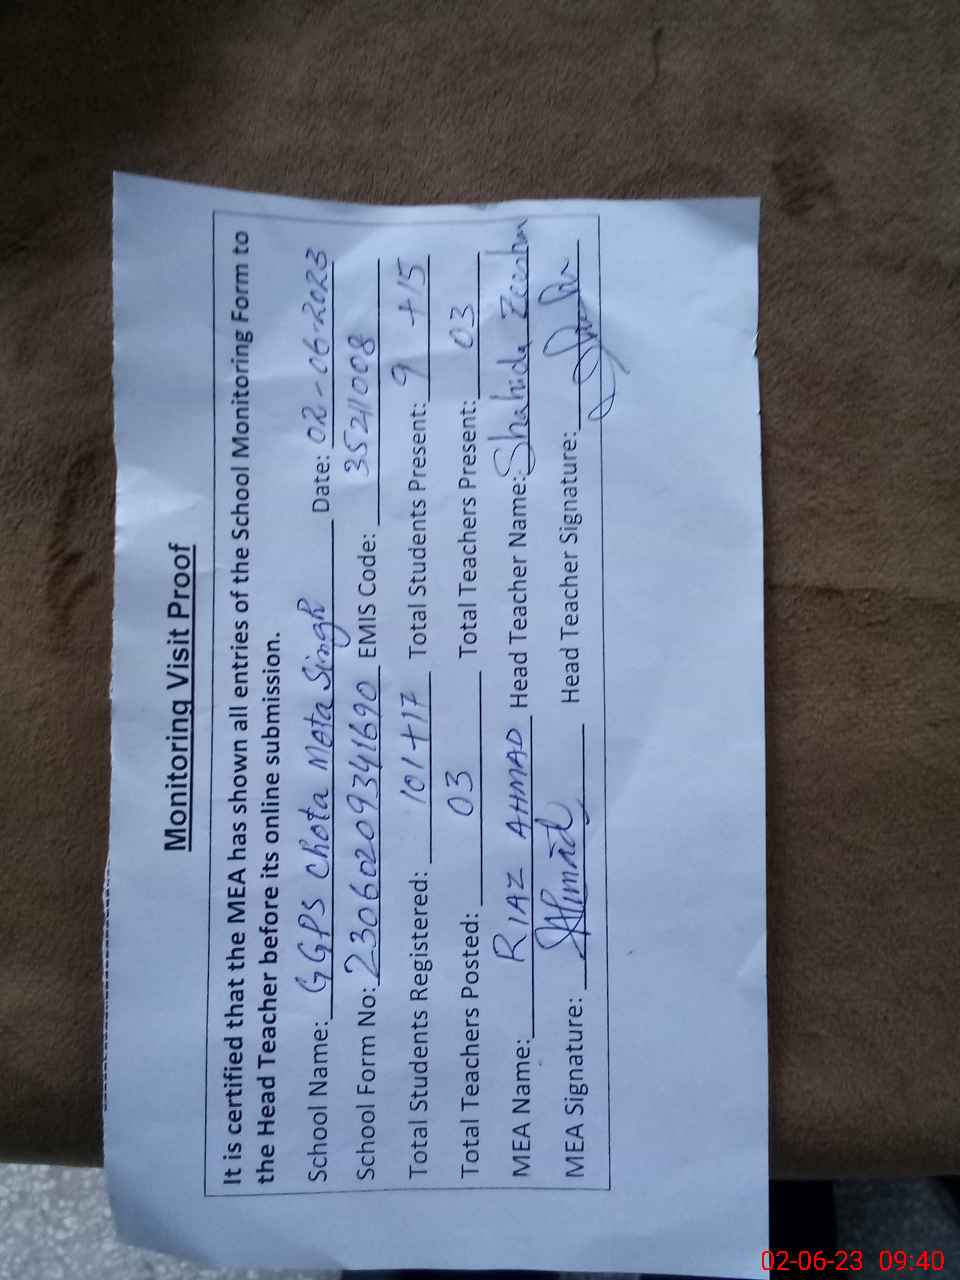 Monitoring Visit Proof
It is certified that the MEA has shown all entries of the School Monitoring Form to
the Head Teacher before its online submission.
School Name: GGPS Chota Mota Singh Date: 02-06-2023
School Form No: 23060209341690 EMIS Code: 35211008
Total Students Registered: 101+17 Total Students Present: 9 +15
Total Teachers Posted: 03 Total Teachers Present: 03
MEA Name: RIAZ AHMAD Head Teacher Name: Shahida Zeeshan
MEA Signature: Ahmad Head Teacher Signature:
02-06-23 09:40